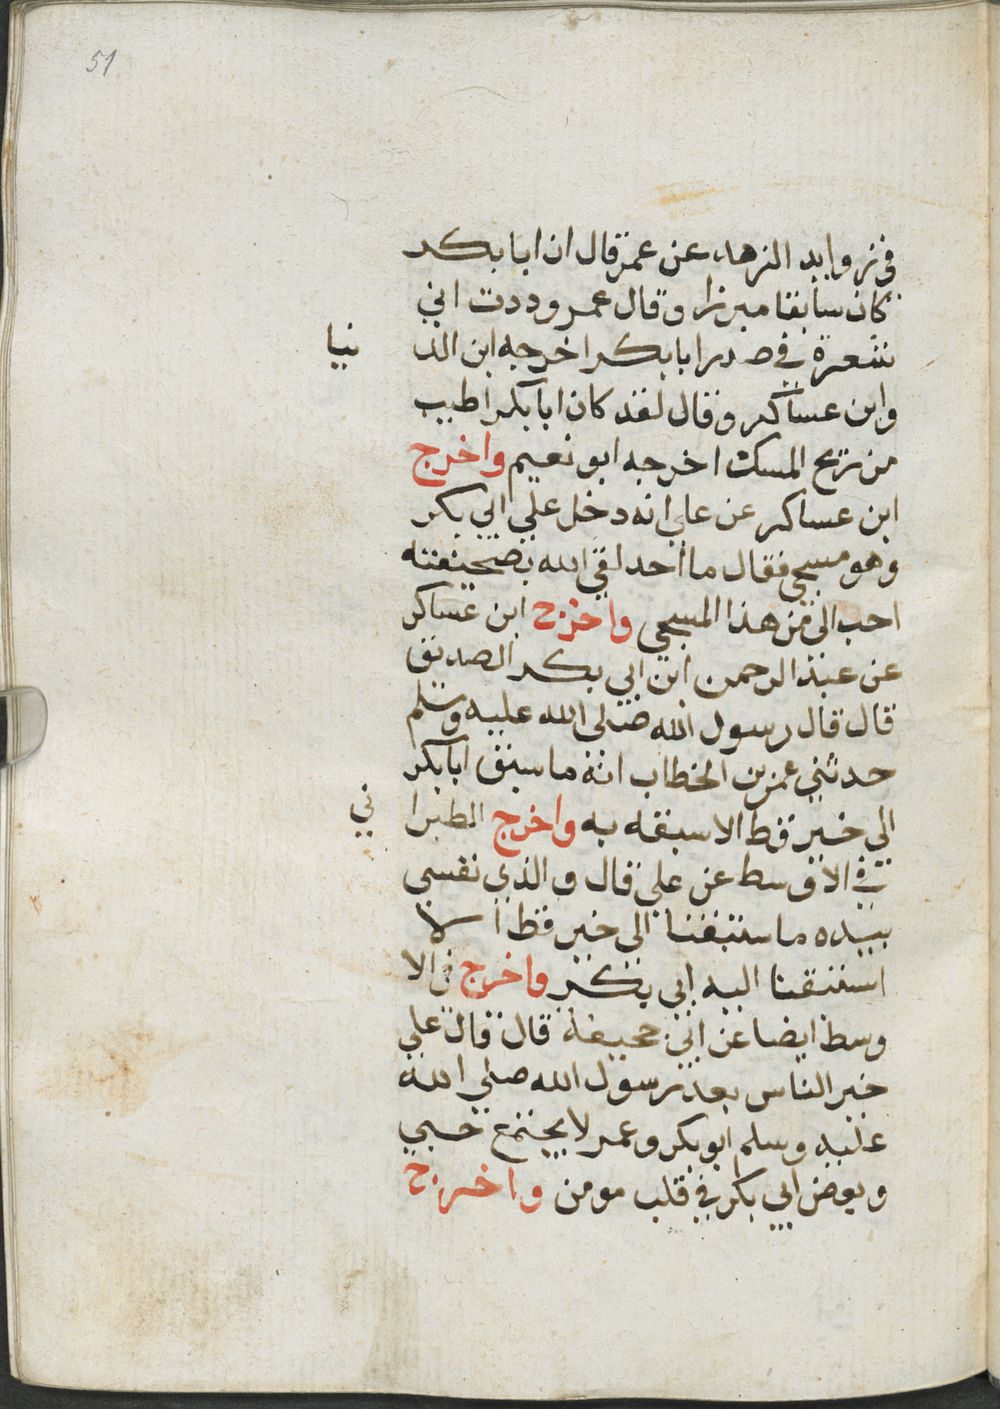 51
في زوايد الزهد عن عمر قال ان ابا بكر
كان سابقا مبرزا وقال عمر وددت اني
شعرة في صدر ابا بكر اخرجه ابن الدنيا
وابن عساكر وقال لقد كان ابا بكر اطيب
من ريح المسك اخرجه ابو نعيم واخرج
ابن عساكر عن علي انه دخل علي ابي بكر
وهو مسجي فقال ما احد لقي الله بصحيفته
احب الي من هذا المسجي واخرج ابن عساكر
عن عبد الرحمن ابن ابي بكر الصديق
قال قال رسول الله صلى الله عليه وسلم
حدثني عمر بن الخطاب انه ما سبق ابا بكر
الي خير قط الا سبقه به واخرج الطبراني
في الاوسط عن علي قال والذي نفسي
بيده ما ستبقنا الى خير قط الا
استبقنا اليه ابي بكر واخرج في الا
وسط ايضا عن ابي جحيفة قال قال علي
خير الناس بعد رسول الله صلى الله
عليه وسلم ابو بكر وعمر لا يجتمع حبي
وبعض ابي بكر في قلب مومن واخرج